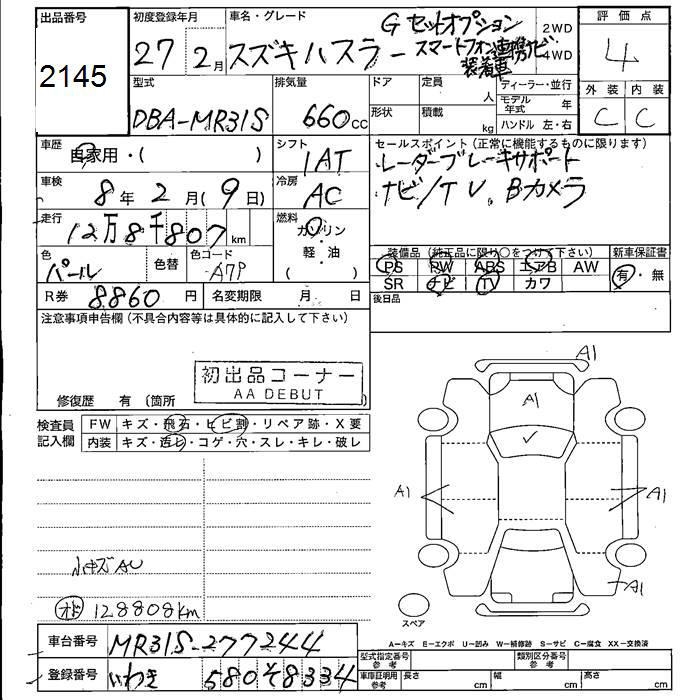 出品番号 初度登録年月 車名・グレード 評価点
2145 27年 2月 スズキハスラー G セットオプション スマートフォン連携ナビ装着車 2WD 4WD 4
型式 排気量 ドア 定員 人 ディーラー・並行 外装 内装
DBA-MR31S 660cc 形状 積載 kg モデル年式 年 ハンドル 左・右 C C
車歴 自家用・( ) シフト セールスポイント(正常に機能するものに限ります)
1AT レーダーブレーキサポート
車検 8年 2月(9日) 冷房 AC ナビ/TV、Bカメラ
走行 12万8千807km 燃料 ガソリン 軽・油 ( )
色 パール 色替 色コード A7P
装備品(純正品に限り○をつけて下さい) 新車保証書
PS PW ABS エアB AW 有・無
SR ナビ TV カワ
R券 8860円 名変期限 月 日 後日品
注意事項申告欄(不具合内容等は具体的に記入して下さい)
初出品コーナー
AA DEBUT
修復歴 有(箇所
検査員記入欄 FW キズ・飛石・ヒビ割・リペア跡・X要
内装 キズ・汚レ・コゲ・穴・スレ・キレ・破レ
A1
A1
A1 A1
A1
小キズAU
オド 128808km
スペア
A-キズ E-エクボ U-凹み W-補修跡 S-サビ C-腐食 XX-交換済
車台番号 MR31S-277244 型式指定番号 参考 類別区分番号 参考
登録番号 いわき 580 そ 8334 車庫証明用参考 長さ cm 幅 cm 高さ cm